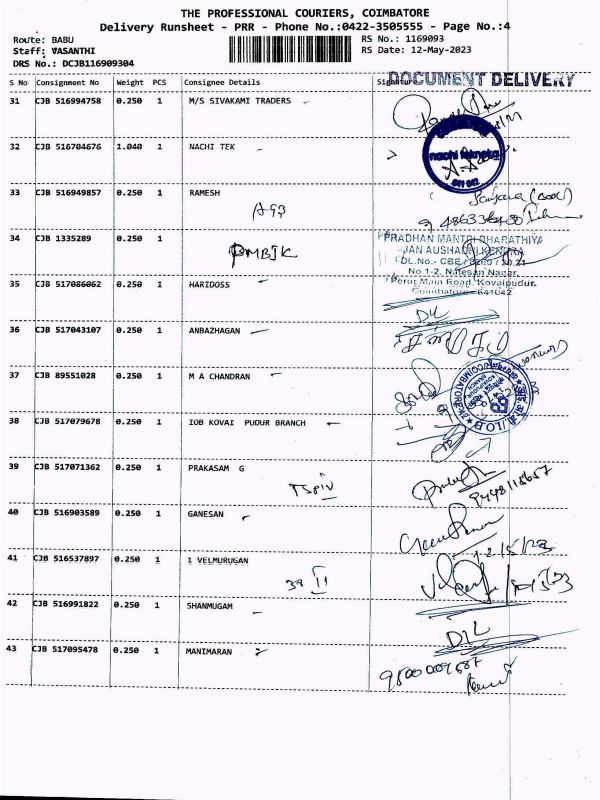 THE PROFESSIONAL COURIERS, COIMBATORE
Delivery Runsheet - PRR - Phone No.:0422-3505555 - Page No.:4
Route: BABU
RS No.: 1169093
Staff: VASANTHI
RS Date: 12-May-2023
DRS No.: DCJB116909304
S No Consignment No Weight PCS Consignee Details Signature
DOCUMENT DELIVERY
31 CJB 516994758 0.250 1 M/S SIVAKAMI TRADERS
32 CJB 516704676 1.040 1 NACHI TEK
33 CJB 516949857 0.250 1 RAMESH
A93
34 CJB 1335289 0.250 1
PMBJK
PRADHAN MANTRI BHARATHIYA
JAN AUSHADHI KENDRA
DL.No.- CBE
No.1-2, Natesan Nagar,
Perur Main Road, Kovaipudur,
Coimbatore - 641042
35 CJB 517086062 0.250 1 HARIDOSS
DIL
36 CJB 517043107 0.250 1 ANBAZHAGAN
37 CJB 89551028 0.250 1 M A CHANDRAN
38 CJB 517079678 0.250 1 IOB KOVAI PUDUR BRANCH
39 CJB 517071362 0.250 1 PRAKASAM G
40 CJB 516903589 0.250 1 GANESAN
12/5/23
41 CJB 516537897 0.250 1 1 VELMURUGAN
42 CJB 516991822 0.250 1 SHANMUGAM
DIL
43 CJB 517095478 0.250 1 MANIMARAN